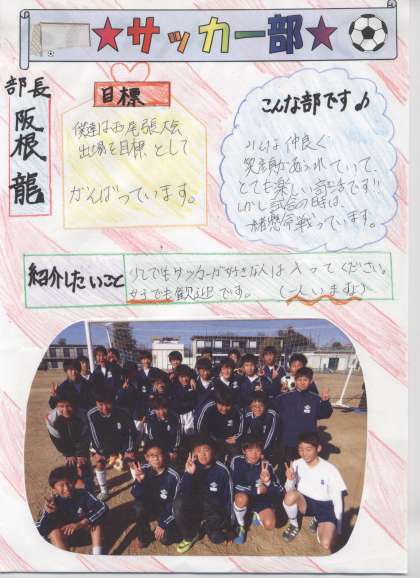 ★サッカー部★
部長
阪根 龍
目標
僕達は西尾張大会
出場を目標として
がんばっています。
こんな部です♪
仲良く
笑顔があふれていて、
とても楽しい部活です!!
しかし試合の時は、
一緒懸命戦っています。
紹介したいこと
少しでもサッカーが好きな人は入ってください。
女子でも歓迎です。(一人いますよ)